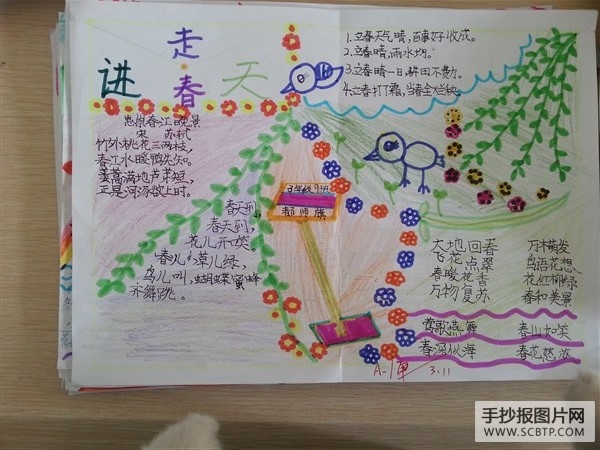 走
进 春 天
惠崇春江晚景
宋 苏轼
竹外桃花三两枝,
春江水暖鸭先知。
蒌蒿满地芦芽短,
正是河豚欲上时。
1.立春天气晴,百事好收成。
2.立春晴,雨水均。
3.立春晴一日,耕田不费力。
4.立春打了霜,当春会烂秧。
3年级9班
春天到,
春天到,
花儿开
草儿绿,
鸟儿叫,蝴蝶蜜蜂
齐舞跳。
大地回春 万木萌发
飞花点翠 鸟语花想
春暖花香 花红柳绿
万物复苏 春和美景
莺歌燕舞 春川如笑
春深似海 春花怒放
A- 3.11
手抄报图片网
WWW.SCBTP.COM